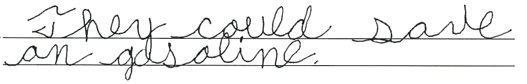 They could save
on gasoline.